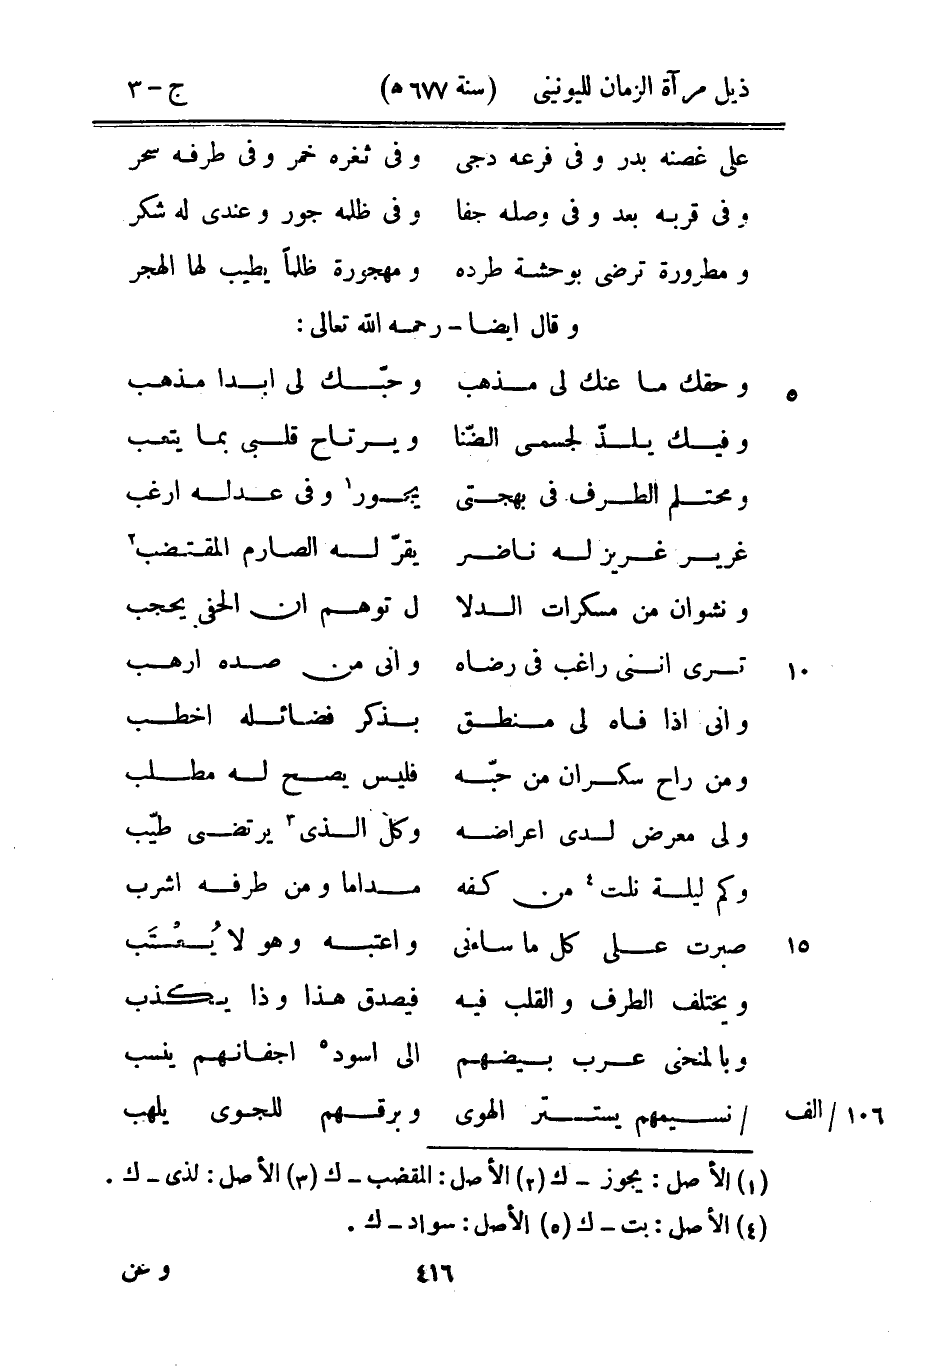 ذيل مرآة الزمان لليونينى (سنة ٦٧٧ ه) ج – ٣
على غصنه بدر و فى فرعه دجى و فى ثغره خمر و فى طرفه سحر
و فى قربه بعد و فى وصله جفا و فى ظلمه جور و عندى له شكر
و مطرورة ترضى بوحشة طرده و مهجورة ظلماً يطيب لها الهجر
و قال ايضا – رحمه الله تعالى :
و حقك ما عنك لى مذهب و حبّك لى ابدا مذهب ٥
و فيك يلذّ لجسمى الضّنا و يرتاح قلبى بما يتعب
و محتلم الطرف فى بهجتى يجور١ و فى عدله ارغب
غرير غريز له ناضر يقرّ له الصارم المقتضب٢
و نشوان من مسكرات الدلا ل توهم ان الحفى يحجب
ترى اننى راغب فى رضاه و انى من صده ارهب ١٠
و انى اذا فاه لى منطق بذكر فضائله اخطب
ومن راح سكران من حبّه فليس يصح له مطلب
و لى معرض لدى اعراضه وكل الذى٣ يرتضى طيّب
وكم ليلة نلت٤ من كفه مداما و من طرفه اشرب
صبرت على كل ما ساءنى و اعتبه وهو لا يُعْتَب ١٥
و يختلف الطرف والقلب فيه فيصدق هذا وذا يكذب
وبالمنحنى عرب بيضهم الى اسود٥ اجفانهم ينسب
/ نسيمهم يستترّ الهوى وبرقهم للجوى يلهب ١٠٦ / الف
(١) الأصل : يجوز – ك (٢) الأصل : المقضب – ك (٣) الأصل : لذى – ك .
(٤) الأصل : بت – ك (٥) الأصل : سواد – ك .
٤١٦ و عن